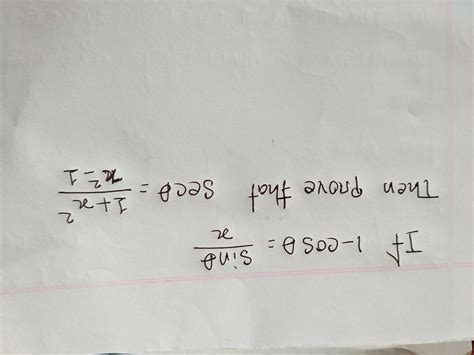 If 1-cosθ = sinθ/x
Then prove that secθ = 1+x²/x²-1